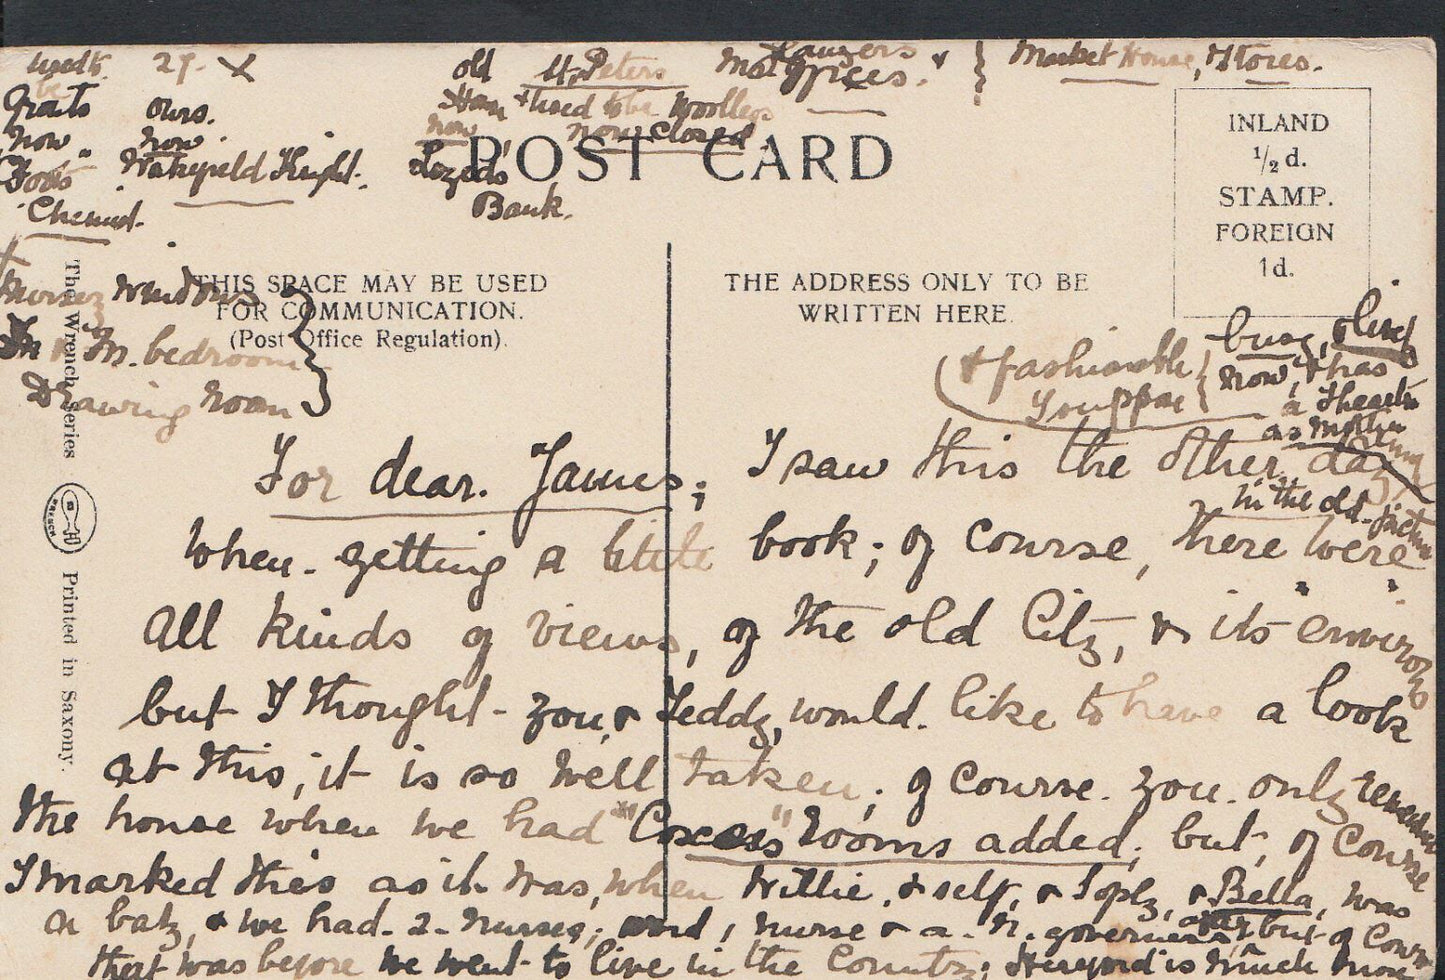 27. X
old St. Peters
Market House, & Stores.
Grouts ours.
Ham & used to be Woolleys
now now
now now closed
Wakefield Knight.
Chemist.
Lloyds
Bank.
POST CARD
INLAND
½d.
STAMP.
FOREIGN
1d.
THIS SPACE MAY BE USED
FOR COMMUNICATION.
(Post Office Regulation).
THE ADDRESS ONLY TO BE
WRITTEN HERE.
Nursery windows
M. bedroom
Drawing Room
The Wrench Series
WRENCH
Printed in Saxony.
& fashionable
busy,
now, & has
a Theatre
as
in the old
For dear. James; I saw this the other day,
when. getting a little book; of course, there were
all kinds of views, of the old City, & its "environs"
but I thought - you, & Teddy, would. like to have a look
at this, it is so well taken; of course. you. only remember
the house when we had "Coxes" rooms added; but, of course
I marked this as it was, when Willie, & self, & Sophy, & Bella, was
a baby, & we had. 2. nurses; and, nurse & a. N. governess, but of course
that was before we went to live in the Country; Hereford is much more